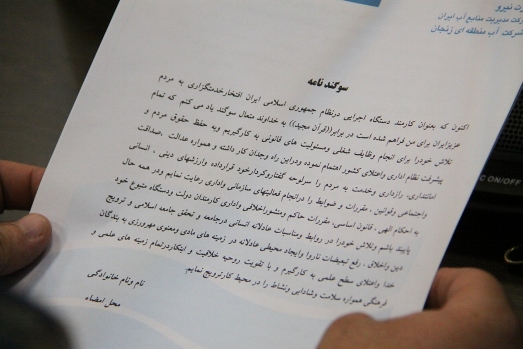 رت نیرو
شرکت مدیریت منابع آب ایران
شرکت آب منطقه ای زنجان
سوگند نامه
اکنون که بعنوان کارمند دستگاه اجرایی درنظام جمهوری اسلامی ایران افتخارخدمتگزاری به مردم
عزیزایران برای من فراهم شده است در برابر((قرآن مجید)) به خداوند متعال سوگند یاد می کنم که تمام
تلاش خودرا برای انجام وظایف شغلی ومسئولیت های قانونی به کارگیریم وبه حفظ حقوق مردم و
پیشرفت نظام اداری واعتلای کشور اهتمام نموده ودراین راه وجدان کار داشته و همواره عدالت ,صداقت
امانتداری، رازداری وخدمت به مردم را سرلوحه گفتاروکردارخود قرارداده وارزشهای دینی ، انسانی
واجتماعی وقوانین ، مقررات و ضوابط را درانجام فعالیتهای سازمانی واداری رعایت نمایم ودر همه حال
به احکام الهی، قانون اساسی، مقررات حاکم ومنشوراخلاقی واداری کارمندان دولت ودستگاه متبوع خود
پایبند باشم وتلاش خودرا در روابط ومناسبات عادلانه انسانی درجامعه و تحقق جامعه اسلامی و ترویج
دین واخلاق ، رفع تبعیضات ناروا وایجاد محیطی عادلانه در زمینه های مادی ومعنوی مهرورزی به بندگان
خدا واعتلای سطح علمی به کارگیرم و با تقویت روحیه خلاقیت و ابتکاردرتمام زمینه های علمی و
فرهنگی همواره سلامت وشادابی ونشاط را در محیط کارترویج نمایم.
نام ونام خانوادگی
محل امضاء
IC ON/OFF